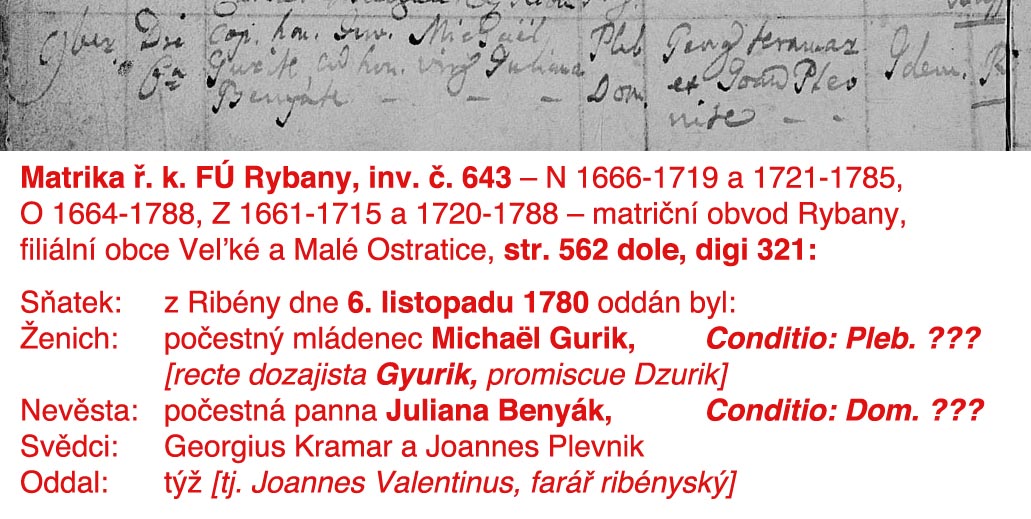 9ber. Die Cop. hon. Juv. Michaël Pleb Georg Kramar Idem. R
6ta Gurik, cū hon. virg Juliana ex Joan Plev
Benyák - - - Dom. nik - -
Matrika ř. k. FÚ Rybany, inv. č. 643 – N 1666-1719 a 1721-1785,
O 1664-1788, Z 1661-1715 a 1720-1788 – matriční obvod Rybany,
filiální obce Veľké a Malé Ostratice, str. 562 dole, digi 321:
Sňatek: z Ribény dne 6. listopadu 1780 oddán byl:
Ženich: počestný mládenec Michaël Gurik, Conditio: Pleb. ???
[recte dozajista Gyurik, promiscue Dzurik]
Nevěsta: počestná panna Juliana Benyák, Conditio: Dom. ???
Svědci: Georgius Kramar a Joannes Plevnik
Oddal: týž [tj. Joannes Valentinus, farář ribényský]